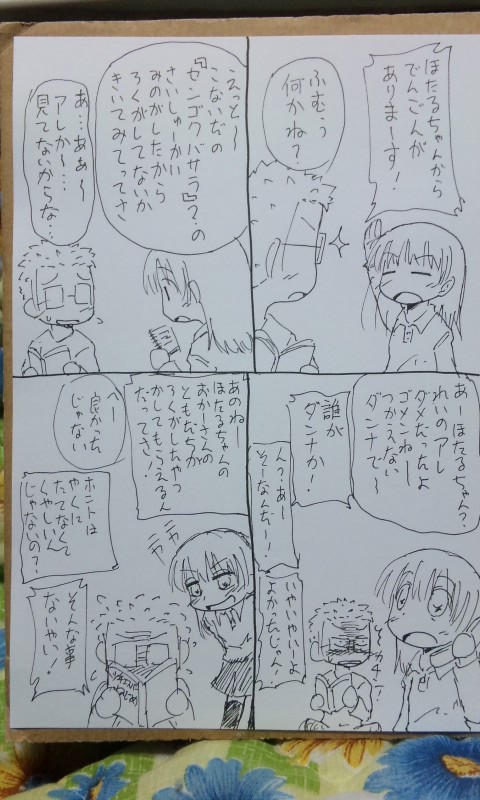 ほたるちゃんから
でんごんが
ありまーす!
ふむぅ
何かね?
えっと〜
こないだの
『センゴクバサラ』?の
さいしゅーかい
みのがしたから
ろくがしてないか
きいてみてってさ
あ…ああ〜
アレか〜…
見てないからな…
あーほたるちゃん?
れいのアレ
ダメだったよ
ゴメンねー
つかえない
ダンナで〜
誰が
ダンナか!
んっ?あー
そーなんだー!
いやいやいーよ
よかったじゃん!
あのねー
ほたるちゃんの
おかーさんの
ともだちが
ろくがしたやつ
かしてもらえるん
だってさ!
へー
良かった
じゃない
ニヤ
ニヤ
ホントは
やくに
たてなくて
くやしいん
じゃないの?
そんな事
ないやい!